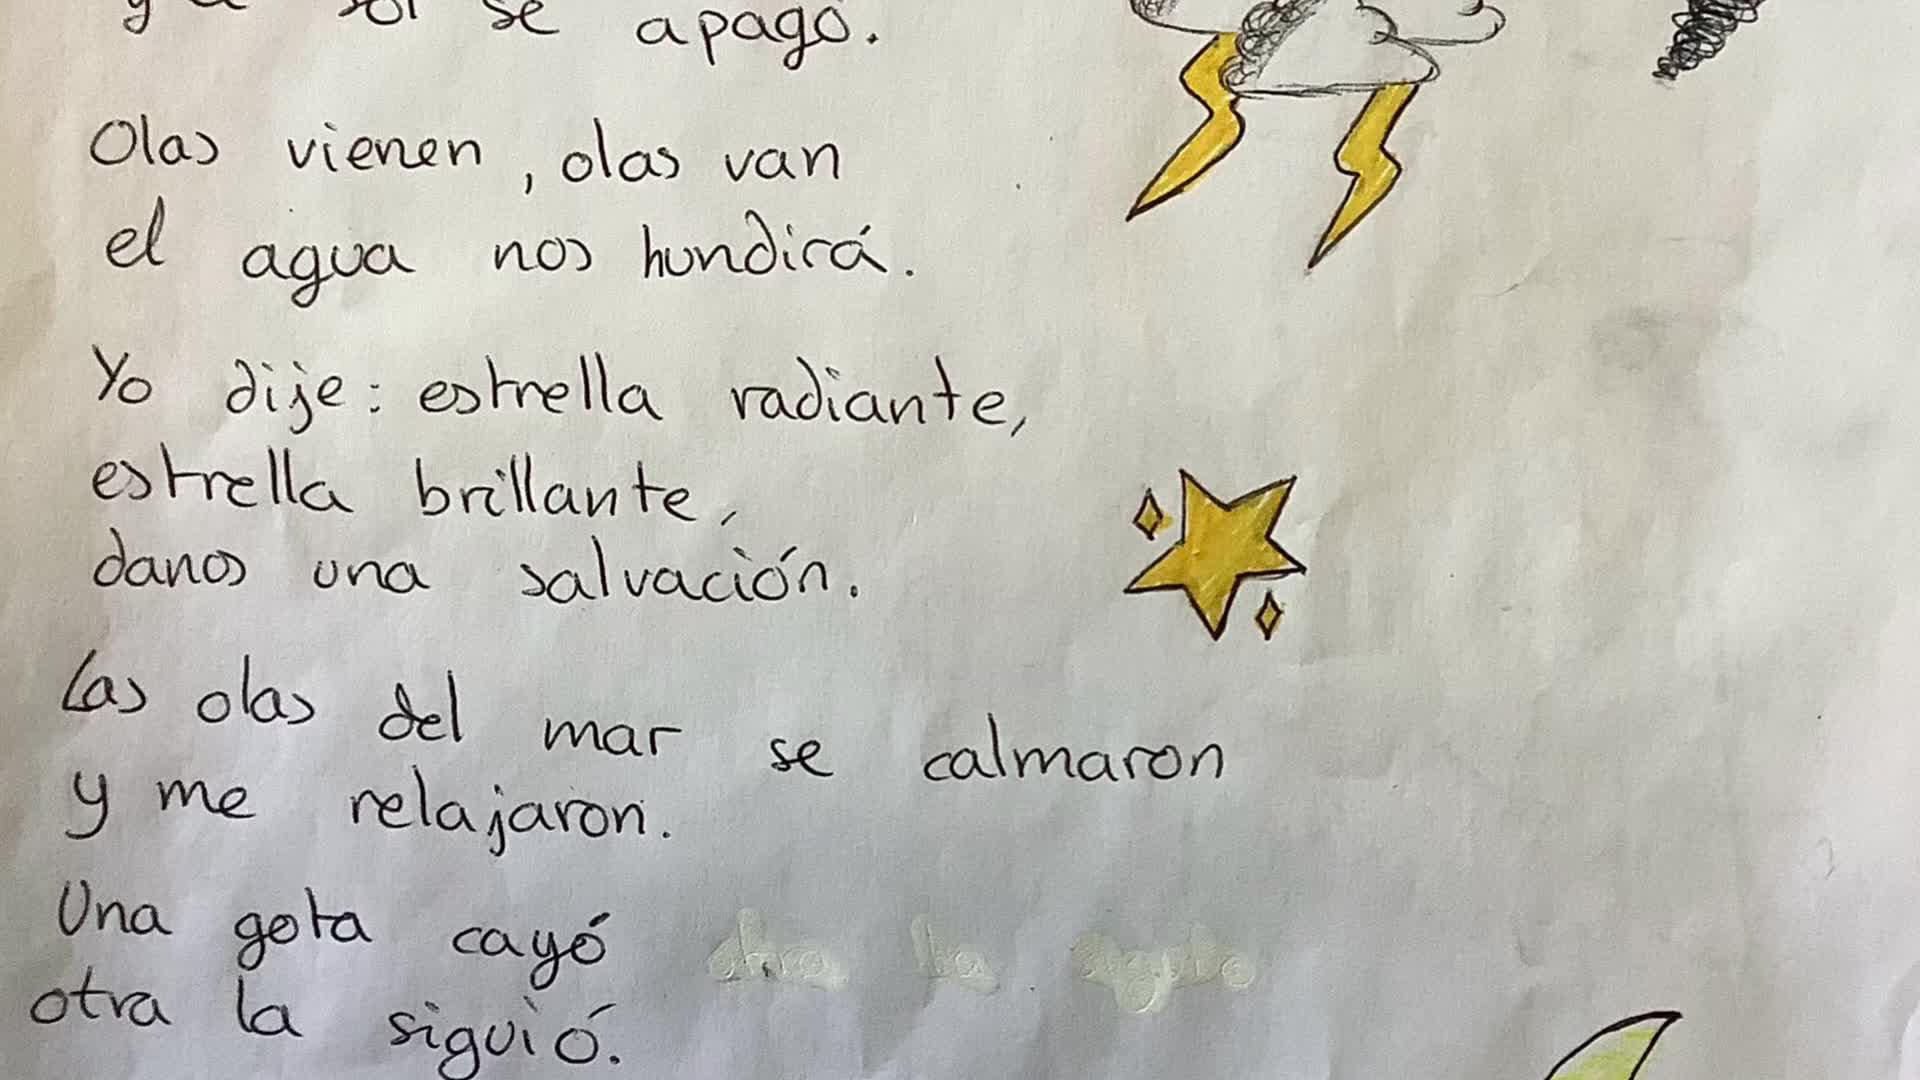 se apagó.
Olas vienen, olas van
el agua nos hundirá.
Yo dije: estrella radiante,
estrella brillante,
danos una salvación.
Las olas del mar se calmaron
y me relajaron.
Una gota cayó
otra la siguió.